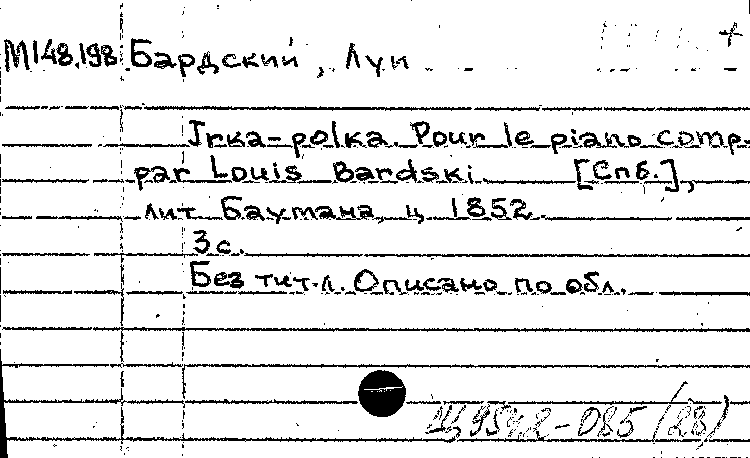 М148.198. Бардский, Луи +
Irka-polka. Pour le piano comp.
par Louis Bardski. [Спб.],
лит. Баумана, ц. 1852.
3 с.
Без тит. л. Описано по обл.